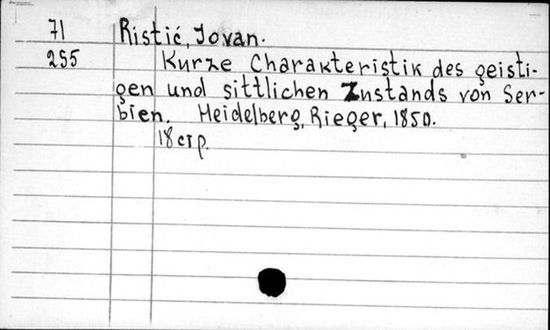 71 Ristić, Jovan.
255 Kurze Charakteristik des geisti-
gen und sittlichen Zustands von Ser-
bien. Heidelberg, Rieger, 1850.
18 стр.